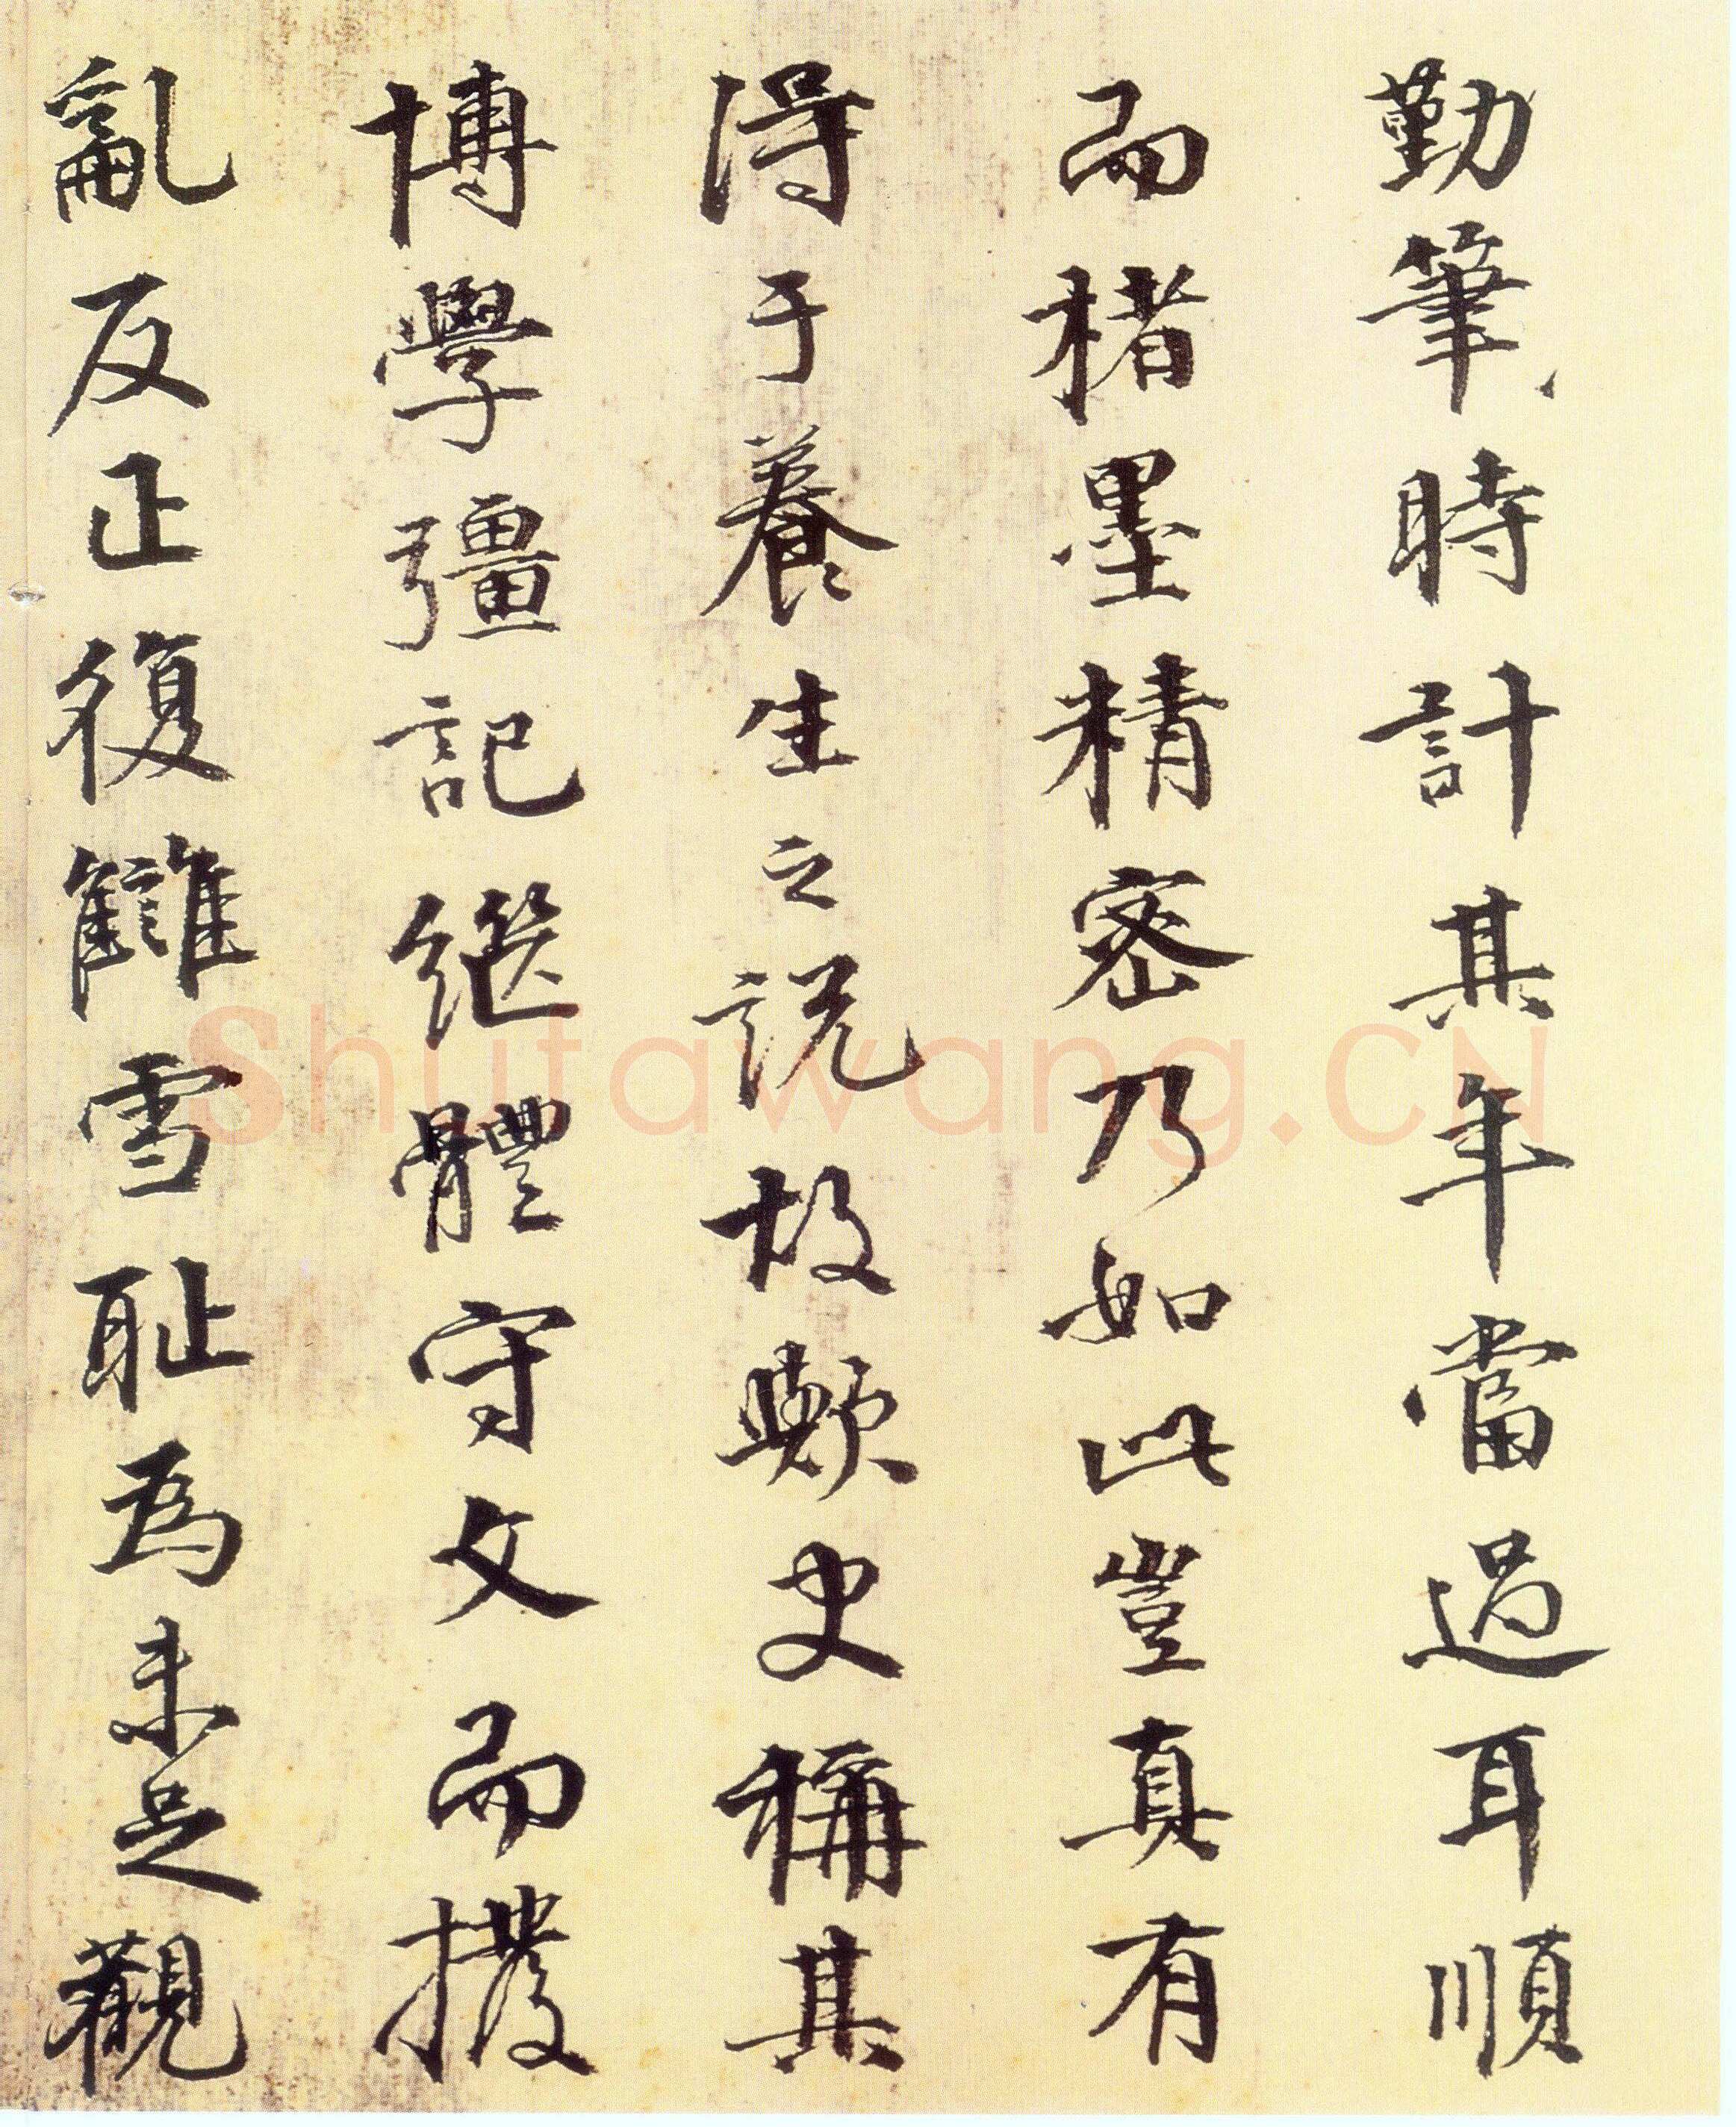 勤筆時計其年當過耳順
而楮墨精密乃如此豈真有
得于養生之説故歟史稱其
博學彊記繼體守文而撥
亂反正復讎雪耻為未足觀
Shufawang.CN